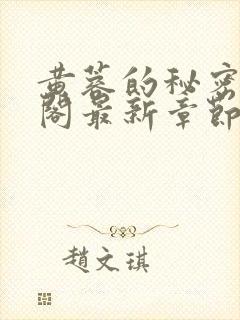 黄蓉的秘密
閣最新章節
趙文琪